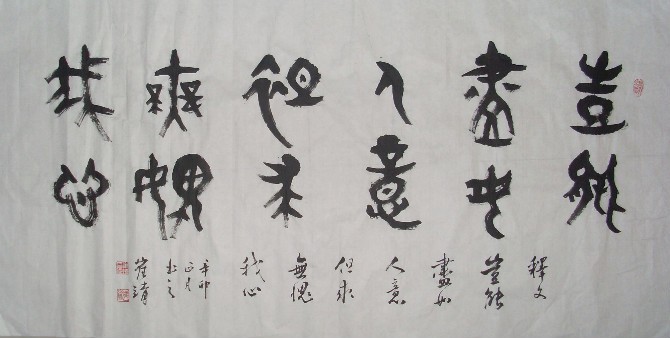 豈能
盡如
人意
但求
無愧
我心
釋文
豈能
盡如
人意
但求
無愧
我心
辛卯
正月
書之
崔靖